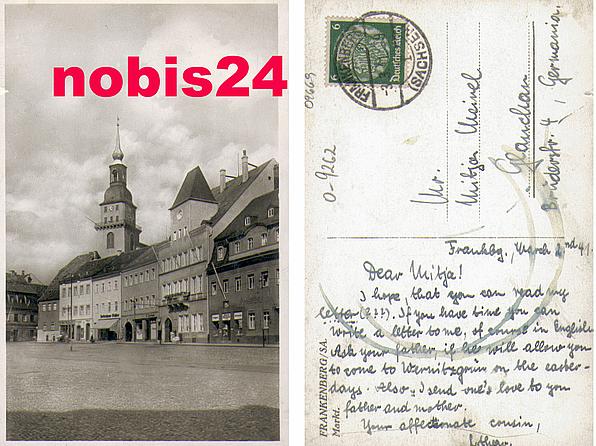 nobis24
6
6
Deutsches Reich
FRANKENBERG
(SACHSEN)
09669
0-9262
Mr.
Mitja Meinel
Glauchau
Brüderstr. 4, Germania.
FRANKENBERG/SA.
Markt.
Frankbg., March 2nd 41.
Dear Mitja!
I hope, that you can read my
letter (???). If you have time you can
write a letter to me, of course in English.
Ask your father, if he will allow you
to come to Wernitzgrün on the easter-
days. Also, I send one's love to you
father and mother.
Your affectionate cousin,
Lothar.